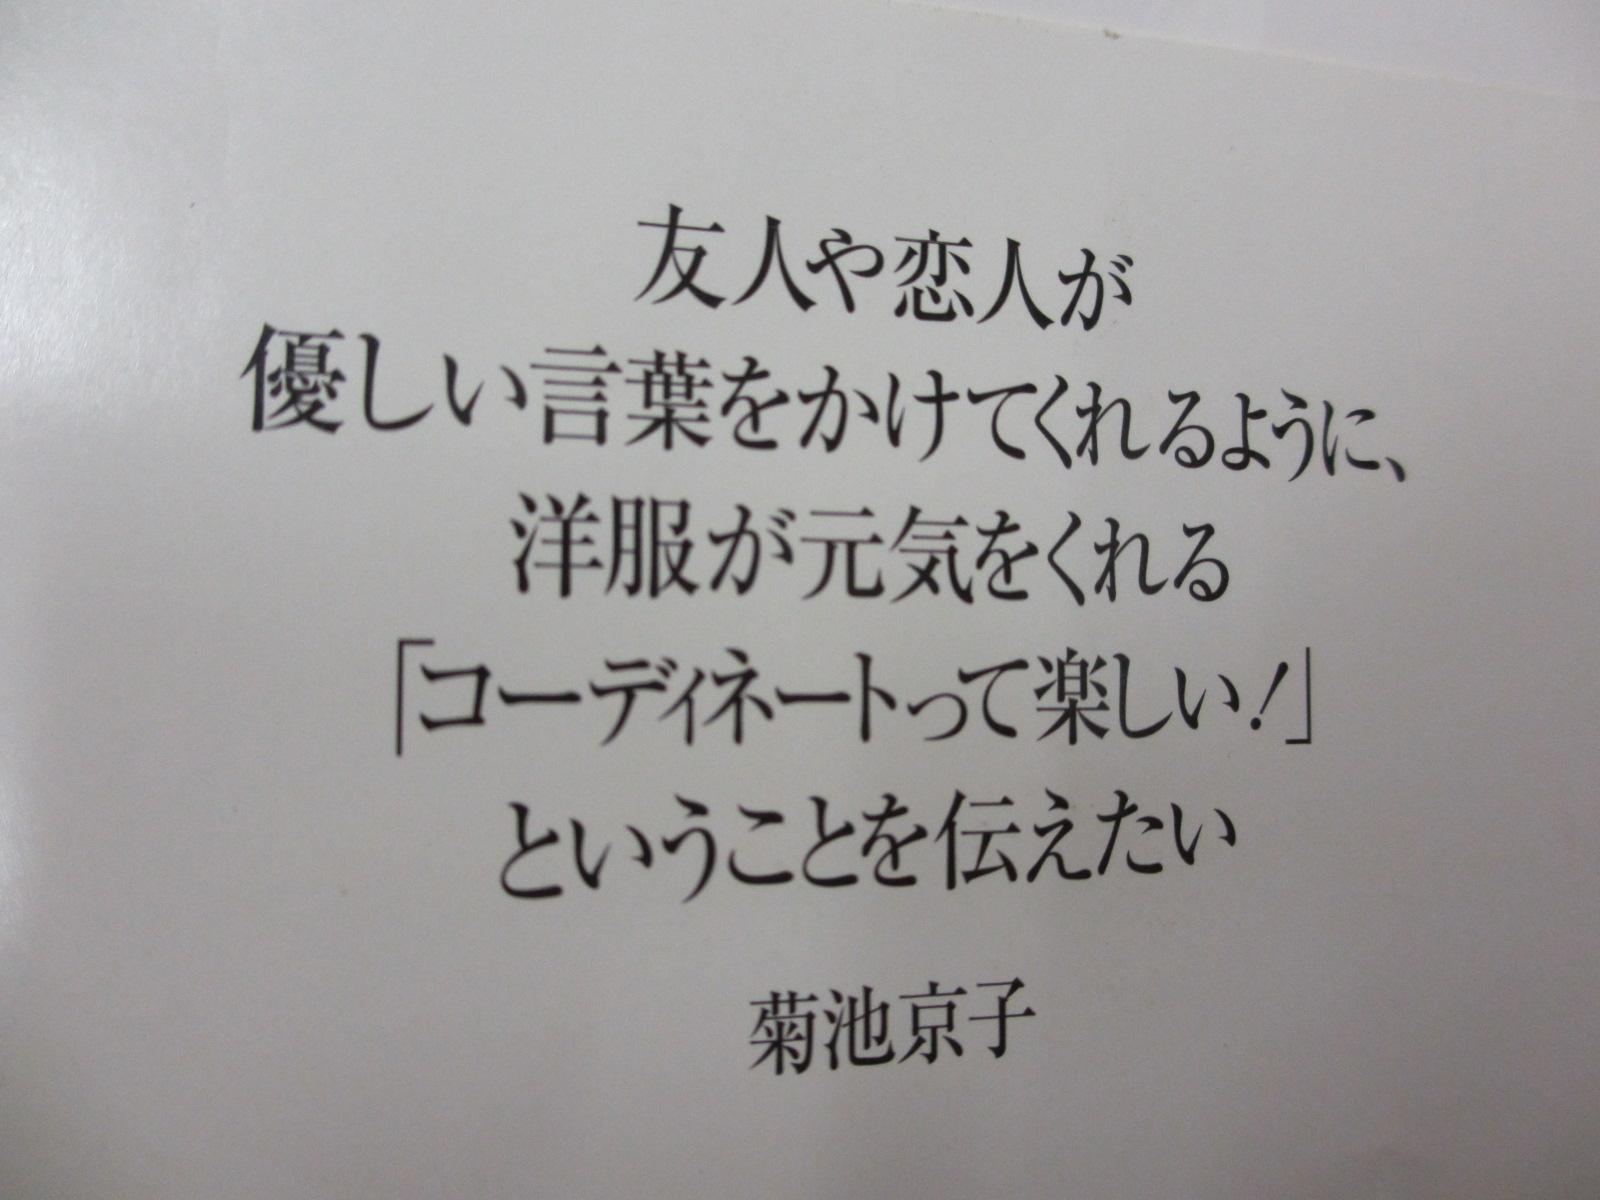 友人や恋人が
優しい言葉をかけてくれるように、
洋服が元気をくれる
「コーディネートって楽しい!」
ということを伝えたい
菊池京子